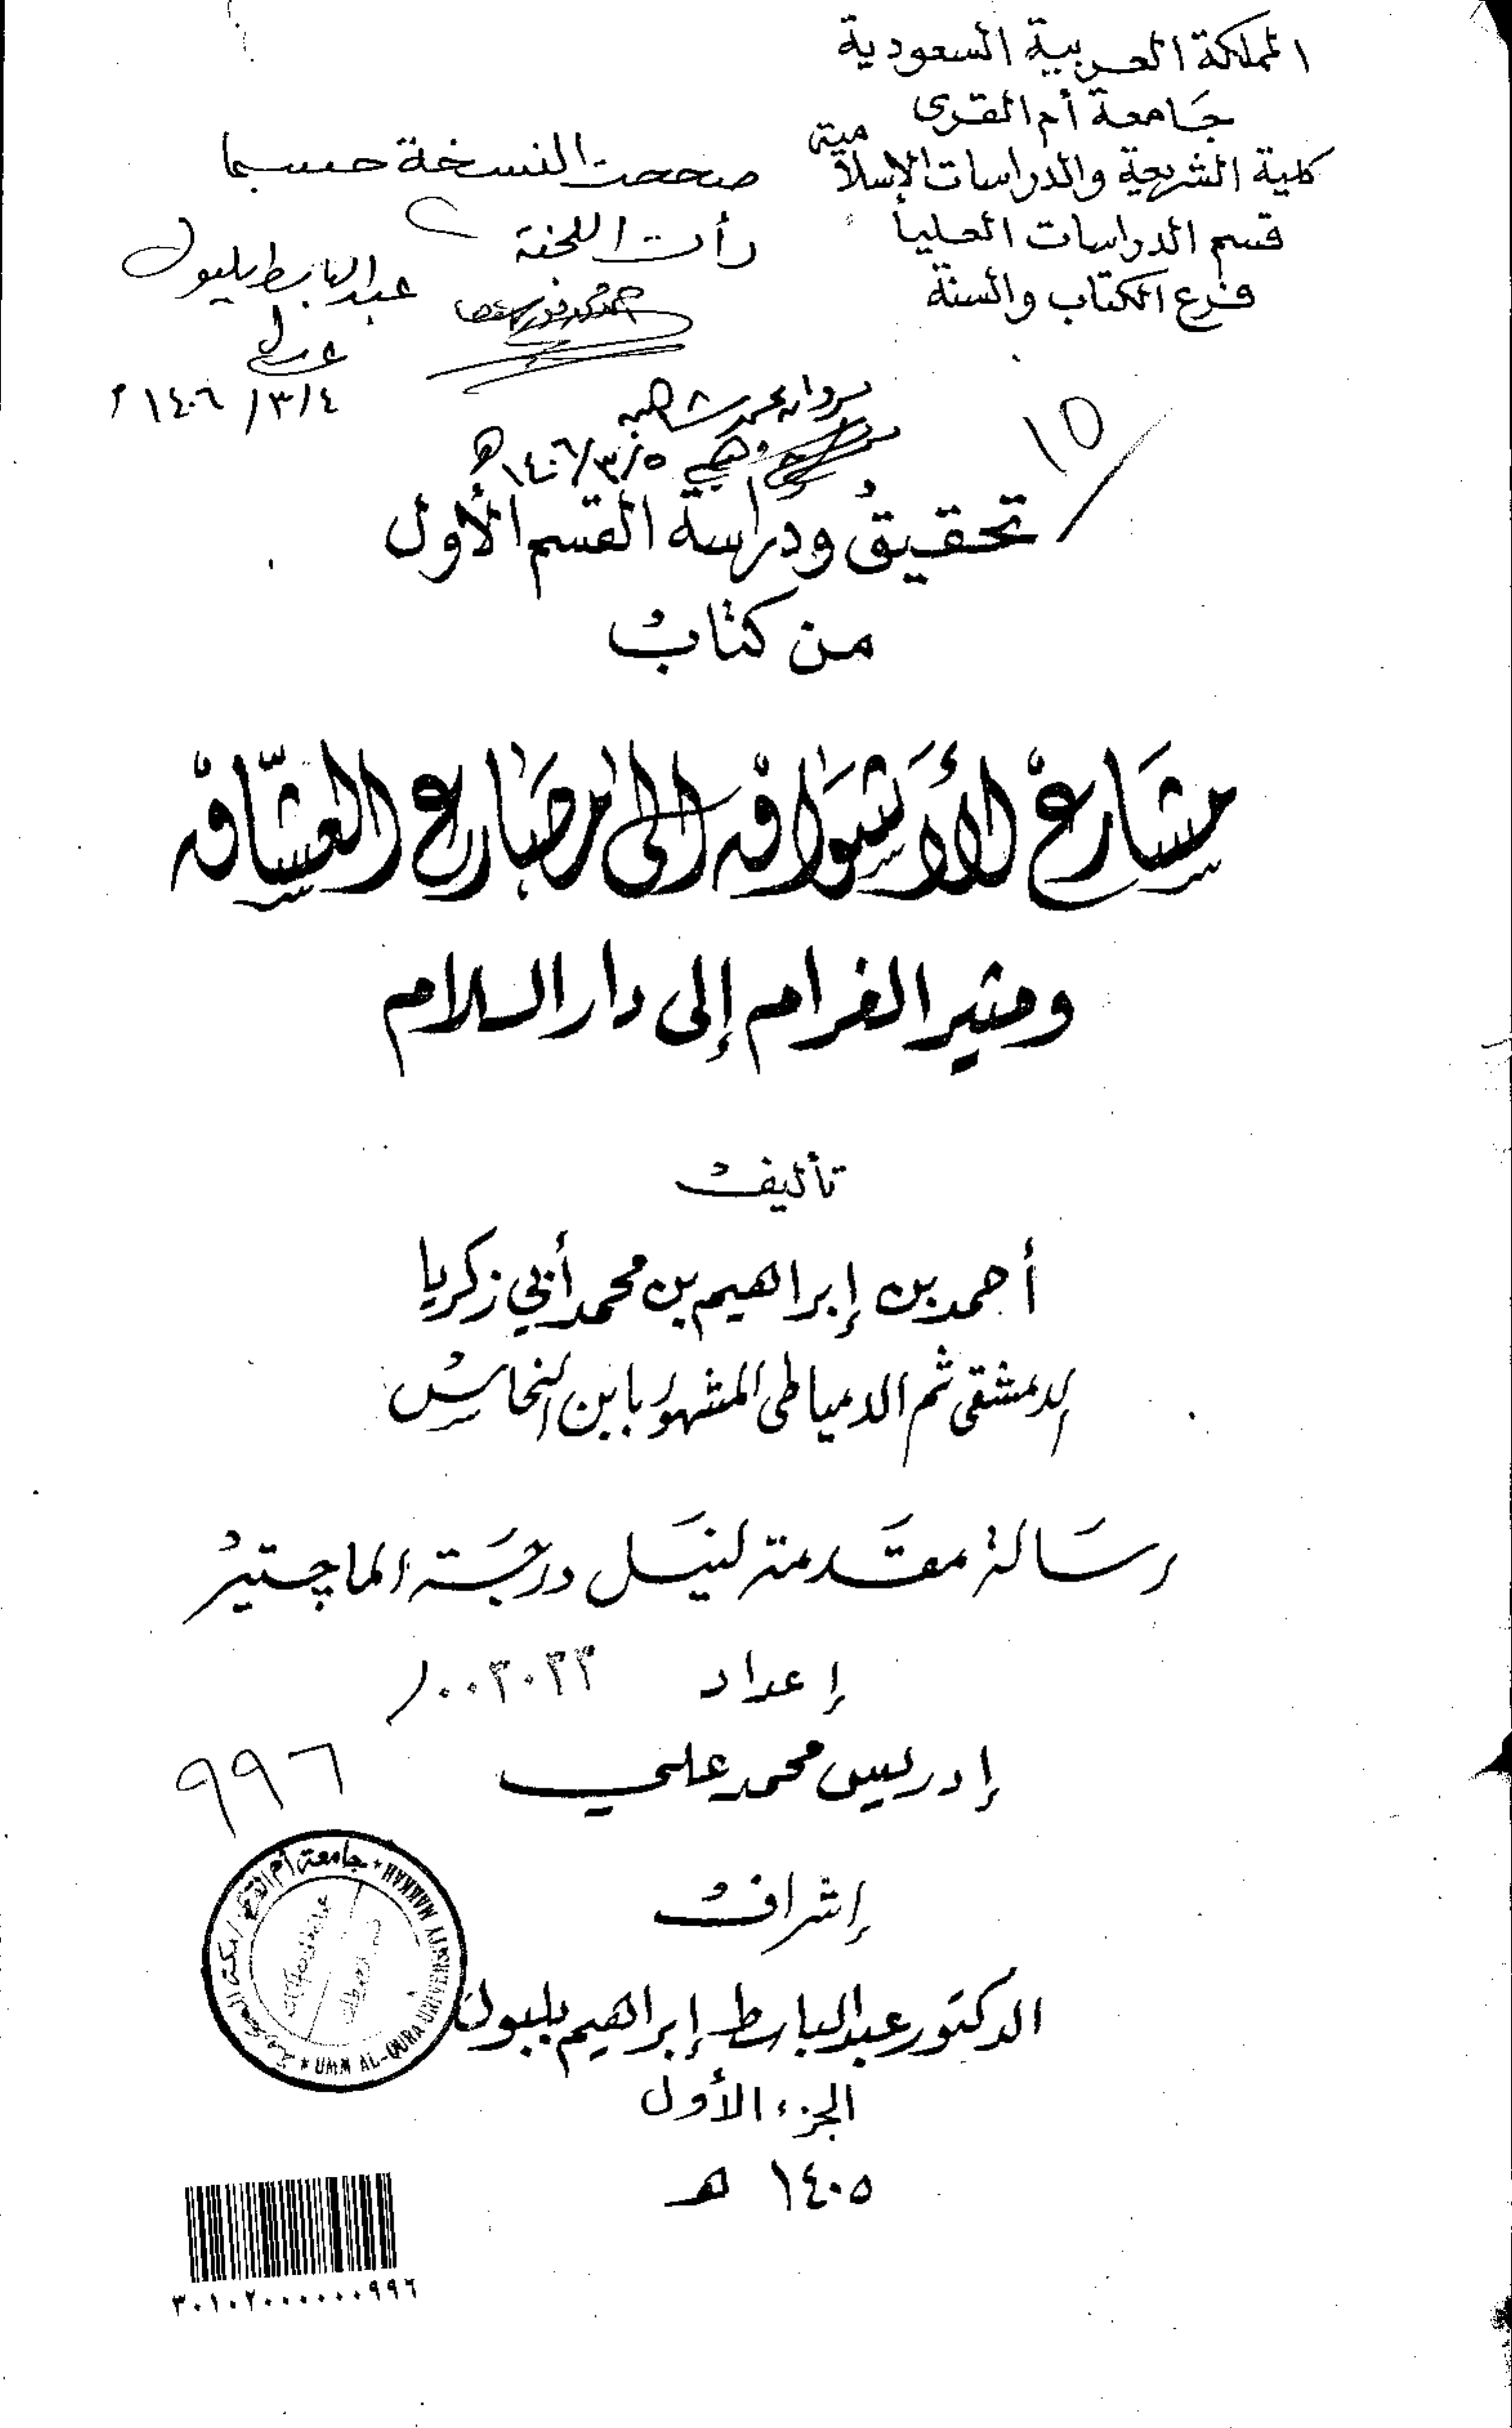 المملكة العربية السعودية
جامعة أم القرى
كلية الشريعة والدراسات الإسلامية
قسم الدراسات العليا
فرع الكتاب والسنة
صححت النسخة حسبما
رأت اللجنة
عبد الباسط بلبول
١٤٠٦/٣/٤
١٤٠٦/٣/٥ هـ
١٥
تحقيقُ ودراسة القسم الأول
من كتابْ
مشَارعْ الأشوَاقْ إلى مصَارع العشّاقْ
ومثير الغرام إلى دار السلام
تأليفْ
أحمد بن إبراهيم بن محمد أبي زكريا
الدمشقي ثم الدمياطي المشهور بابن النحاسْ
رسَالة مقَدمة لنيَل درجَة الماجستيرْ
إعداد ٠٠٣٠٢٣
إدريس محمد علي
٩٩٦
إشرافْ
الدكتور عبد الباسط إبراهيم بلبول
جامعة أم القرى
UMM AL-QURA UNIVERSITY MAKKAH
الجزء الأول
١٤٠٥ هـ
٣٠١٠٢٠٠٠٠٠٠٩٩٦